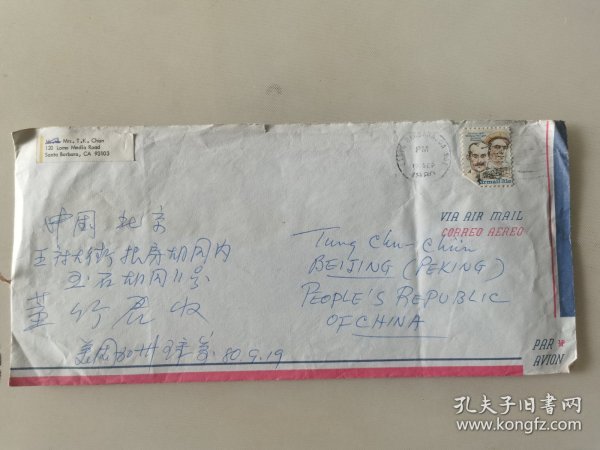 Mrs. T. K. Chen
130 Loma Media Road
Santa Barbara, CA 93103
PM
SEP
1980
VIA AIR MAIL
CORREO AEREO
中国 北京
胡同内
玉石胡同11号
董竹君收
美国加州 80.9.19
Tung Chu-Chün
BEIJING (PEKING)
PEOPLE'S REPUBLIC
OF CHINA
PAR
AVION
孔夫子旧书网
www.kongfz.com